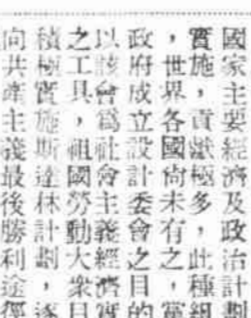 國家主要經濟及政治計劃
實施，貢獻極多，此種組
，世界各國尚未有之，黨
政府成立設計委會之目的
以該會爲社會主義經濟實
之工具，祖國勞動大衆目
積極實施斯達林計劃，逐
向共產主義最後勝利途徑